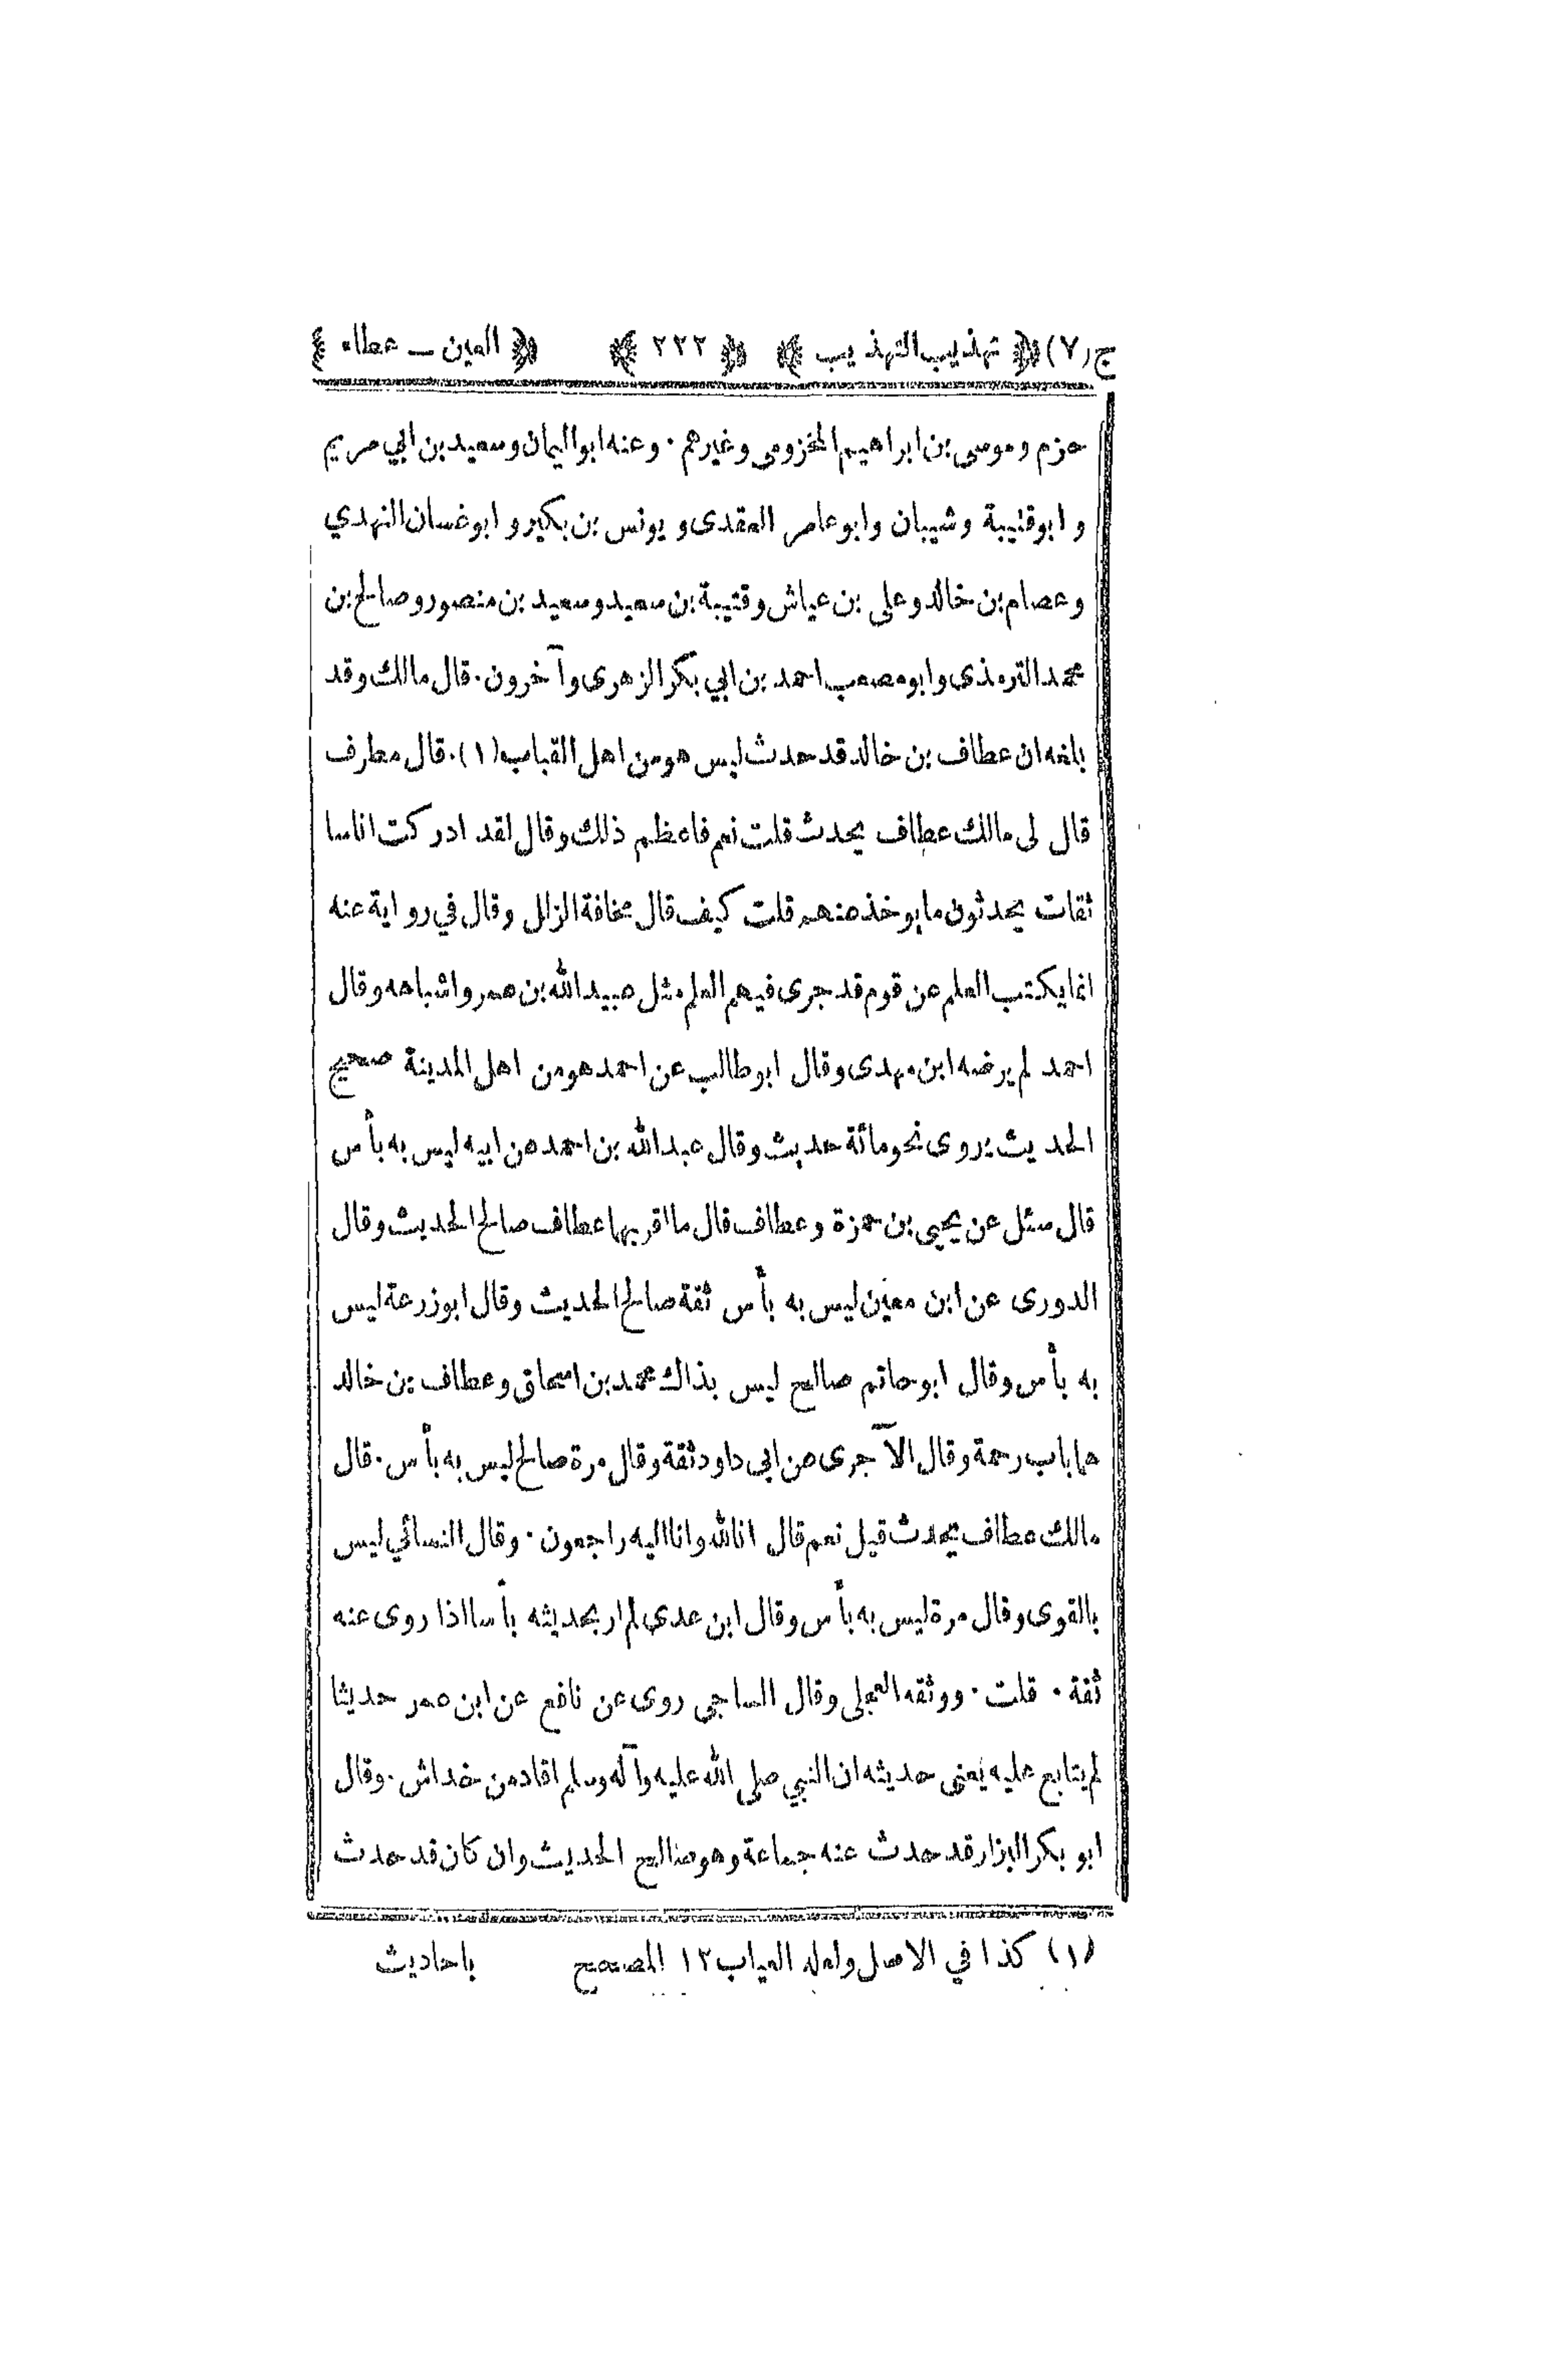 ج (٧) ﴿ تهذيب التهذيب ﴾ ﴿ ٢٢٢ ﴾ ﴿ العين ــ عطاء ﴾
حزم وموسى بن ابراهيم المخزومي وغيرهم ۰ وعنه ابواليمان وسعيد بن ابي مريم
و ابوقتيبة وشيبان وابوعامر العقدى و يونس بن بكير و ابوغسان النهدي
وعصام بن خالد وعلى بن عياش وقتيبة بن سعيد وسعيد بن منصور وصالح بن
محمد الترمذى وابومصعب احمد بن ابي بكر الزهرى وآخرون ۰ قال مالك وقد
بلغه ان عطاف بن خالد قد حدث ليس هو من اهل القباب (١) ۰ قال مطرف
قال لى مالك عطاف يحدث قلت نعم فاعظم ذلك وقال لقد ادركت اناسا
ثقات يحدثون ما يوخذ منهم قلت كيف قال مخافة الزلل وقال في رواية عنه
انما يكتب العلم عن قوم قد جرى فيهم العلم مثل عبيد الله بن عمر واشباهه وقال
احمد لم يرضه ابن مهدى وقال ابوطالب عن احمد هو من اهل المدينة صحيح
الحديث يروى نحو مائة حديث وقال عبدالله بن احمد عن ابيه ليس به بأس
قال سئل عن يحيى بن حمزة وعطاف قال ما اقربهما عطاف صالح الحديث وقال
الدورى عن ابن معين ليس به بأس ثقة صالح الحديث وقال ابوزرعة ليس
به بأس وقال ابوحاتم صالح ليس بذاك محمد بن اسحاق وعطاف بن خالد
هما باب رحمة وقال الآجرى عن ابى داود ثقة وقال مرة صالح ليس به بأس ۰ قال
مالك عطاف يحدث قيل نعم قال انا لله وانا اليه راجعون ۰ وقال النسائي ليس
بالقوى وقال مرة ليس به بأس وقال ابن عدى لم ار بحديثه بأسا اذا روى عنه
ثقة ۰ قلت ۰ ووثقه العجلى وقال الساجى روى عن نافع عن ابن عمر حديثا
لم يتابع عليه يعنى حديثه ان النبي صلى الله عليه وآله وسلم اقاد من خداش ۰ وقال
ابو بكر البزار قد حدث عنه جماعة وهو صالح الحديث وان كان قد حدث
(١) كذا في الاصل ولعله العياب ١٢ المصحح باحاديث